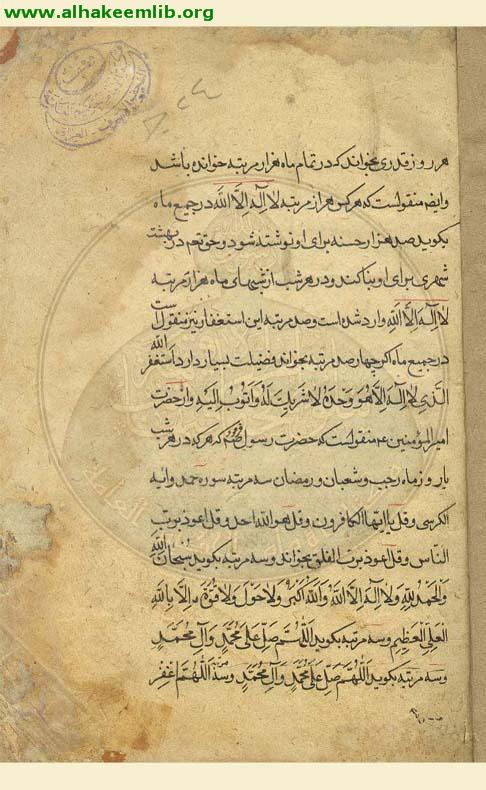 www.alhakeemlib.org
هر روز قدری بخواند که در تمام ماه هزار مرتبه خوانده باشد
وایضا منقولست که هر کس هزار مرتبه لا اله الا الله در جمیع ماه
بکوید صد هزار حسنه برای او نوشته شود و حق تعم در بهشت
شهری برای او بنا کند و در هر شب از شبهای ماه هزار مرتبه
لا اله الا الله وارد شده است و صد مرتبه این استغفار نیز منقول است
در جمیع ماه اکر چهار صد مرتبه بخواند فضیلت بسیار دارد استغفر الله
الذی لا اله الا هو وحده لا شریک له و اتوب الیه و از حضرت
امیر المؤمنین ع منقولست که حضرت رسول فرمود که هر که در هر شب
و روز ماه رجب و شعبان و رمضان سه مرتبه سوره حمد و ایه
الکرسی و قل یا ایها الکافرون و قل هو الله احد و قل اعوذ برب
الناس و قل اعوذ برب الفلق بخواند و سه مرتبه بکوید سبحان الله
والحمد لله ولا اله الا الله والله اکبر ولا حول ولا قوة الا بالله
العلی العظیم و سه مرتبه بکوید اللهم صل علی محمد و آل محمد
و سه مرتبه بکوید اللهم صل علی محمد و آل محمد و سه اللهم اغفر